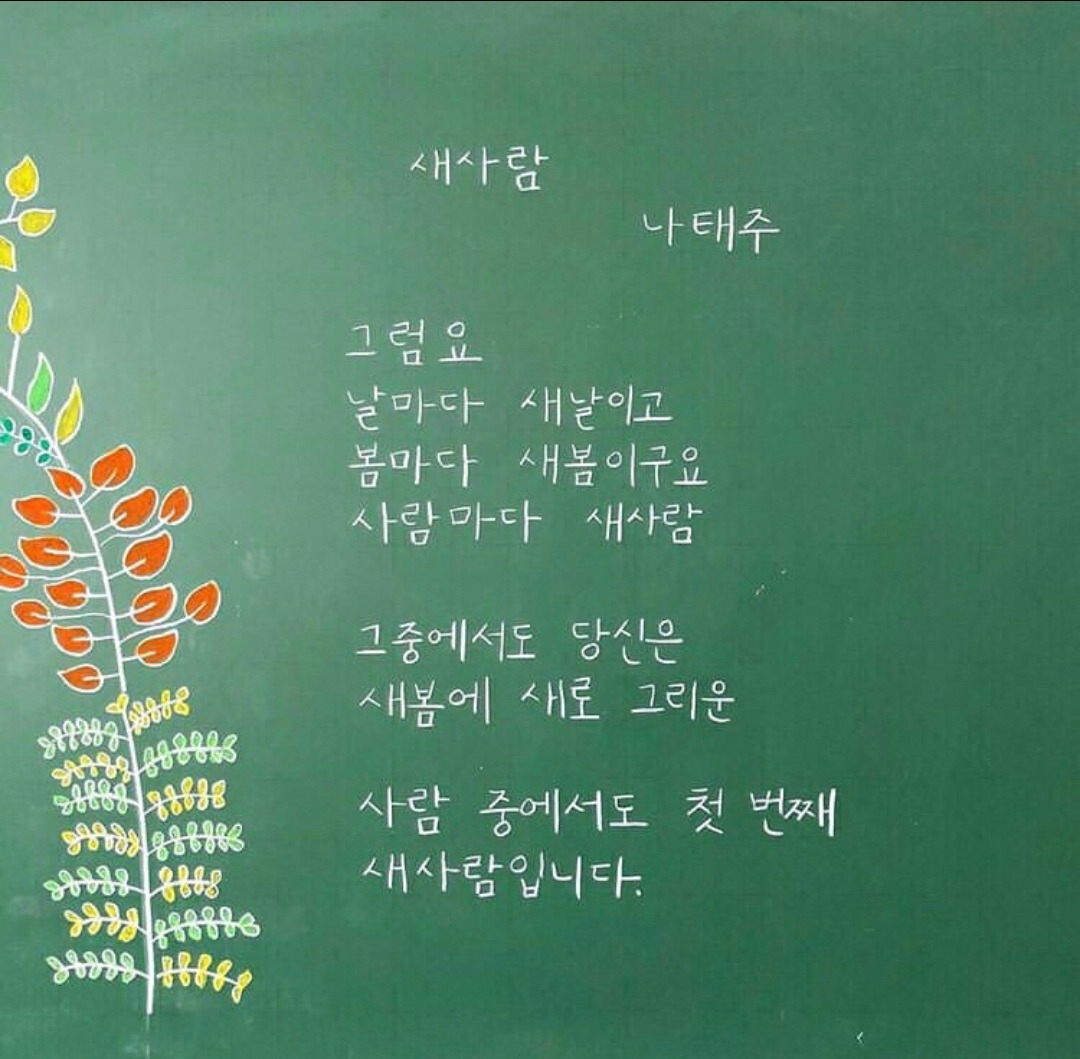 새사람
나태주
그럼요
날마다 새날이고
봄마다 새봄이구요
사람마다 새사람
그중에서도 당신은
새봄에 새로 그리운
사람 중에서도 첫 번째
새사람입니다.